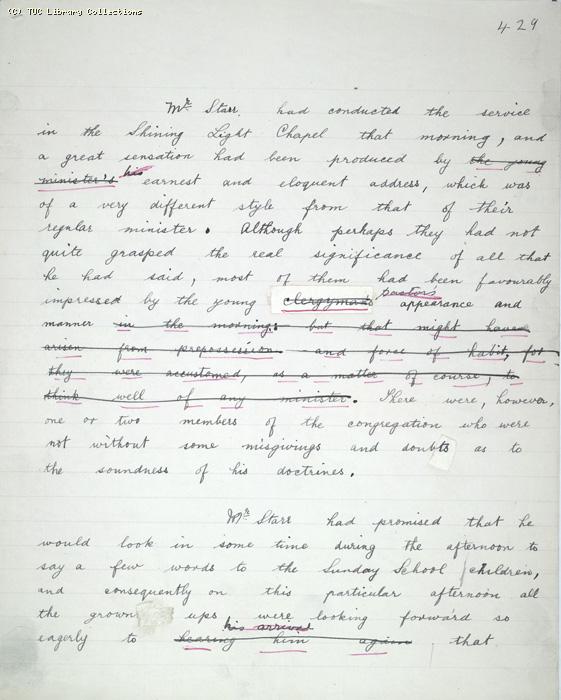 (C) TUC Library Collections
429
Mr Starr had conducted the service
in the Shining Light Chapel that morning, and
a great sensation had been produced by the young
minister's his earnest and eloquent address, which was
of a very different style from that of their
regular minister. Although perhaps they had not
quite grasped the real significance of all that
he had said, most of them had been favourably
impressed by the young clergyman's pastor's appearance and
manner in the morning: but that might have
arisen from prepossession and force of habit, for
they were accustomed, as a matter of course, to
think well of any minister. There were, however,
one or two members of the congregation who were
not without some misgivings and doubts as to
the soundness of his doctrines.
Mr Starr had promised that he
would look in some time during the afternoon to
say a few words to the Sunday School children,
and consequently on this particular afternoon all
the grown ups were looking forward so
eagerly to hearing him again his arrival that